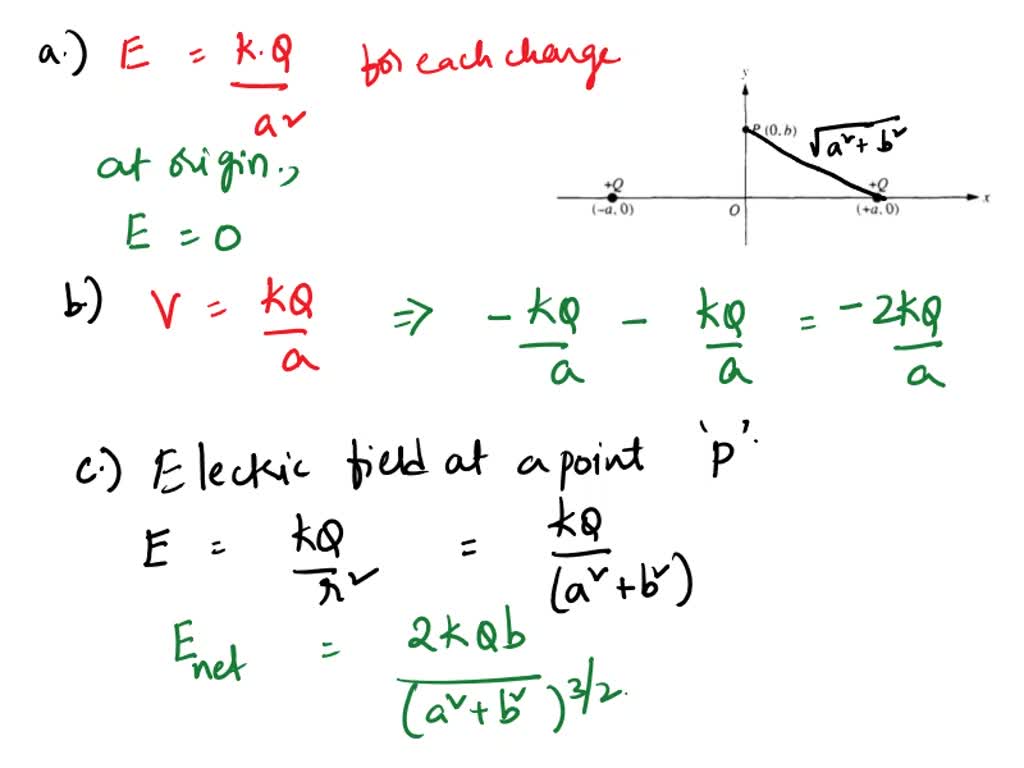 a.) E = k.Q / a² for each charge
at origin.,
E = 0
y
P (0, b) √a²+b²
+Q +Q
(-a, 0) O (+a, 0) x
b) V = kQ / a ⇒ - kQ / a - kQ / a = -2kQ / a
c.) Electric field at a point 'P'.
E = kQ / r² = kQ / (a²+b²)
E net = 2kQb / (a²+b²)3/2.